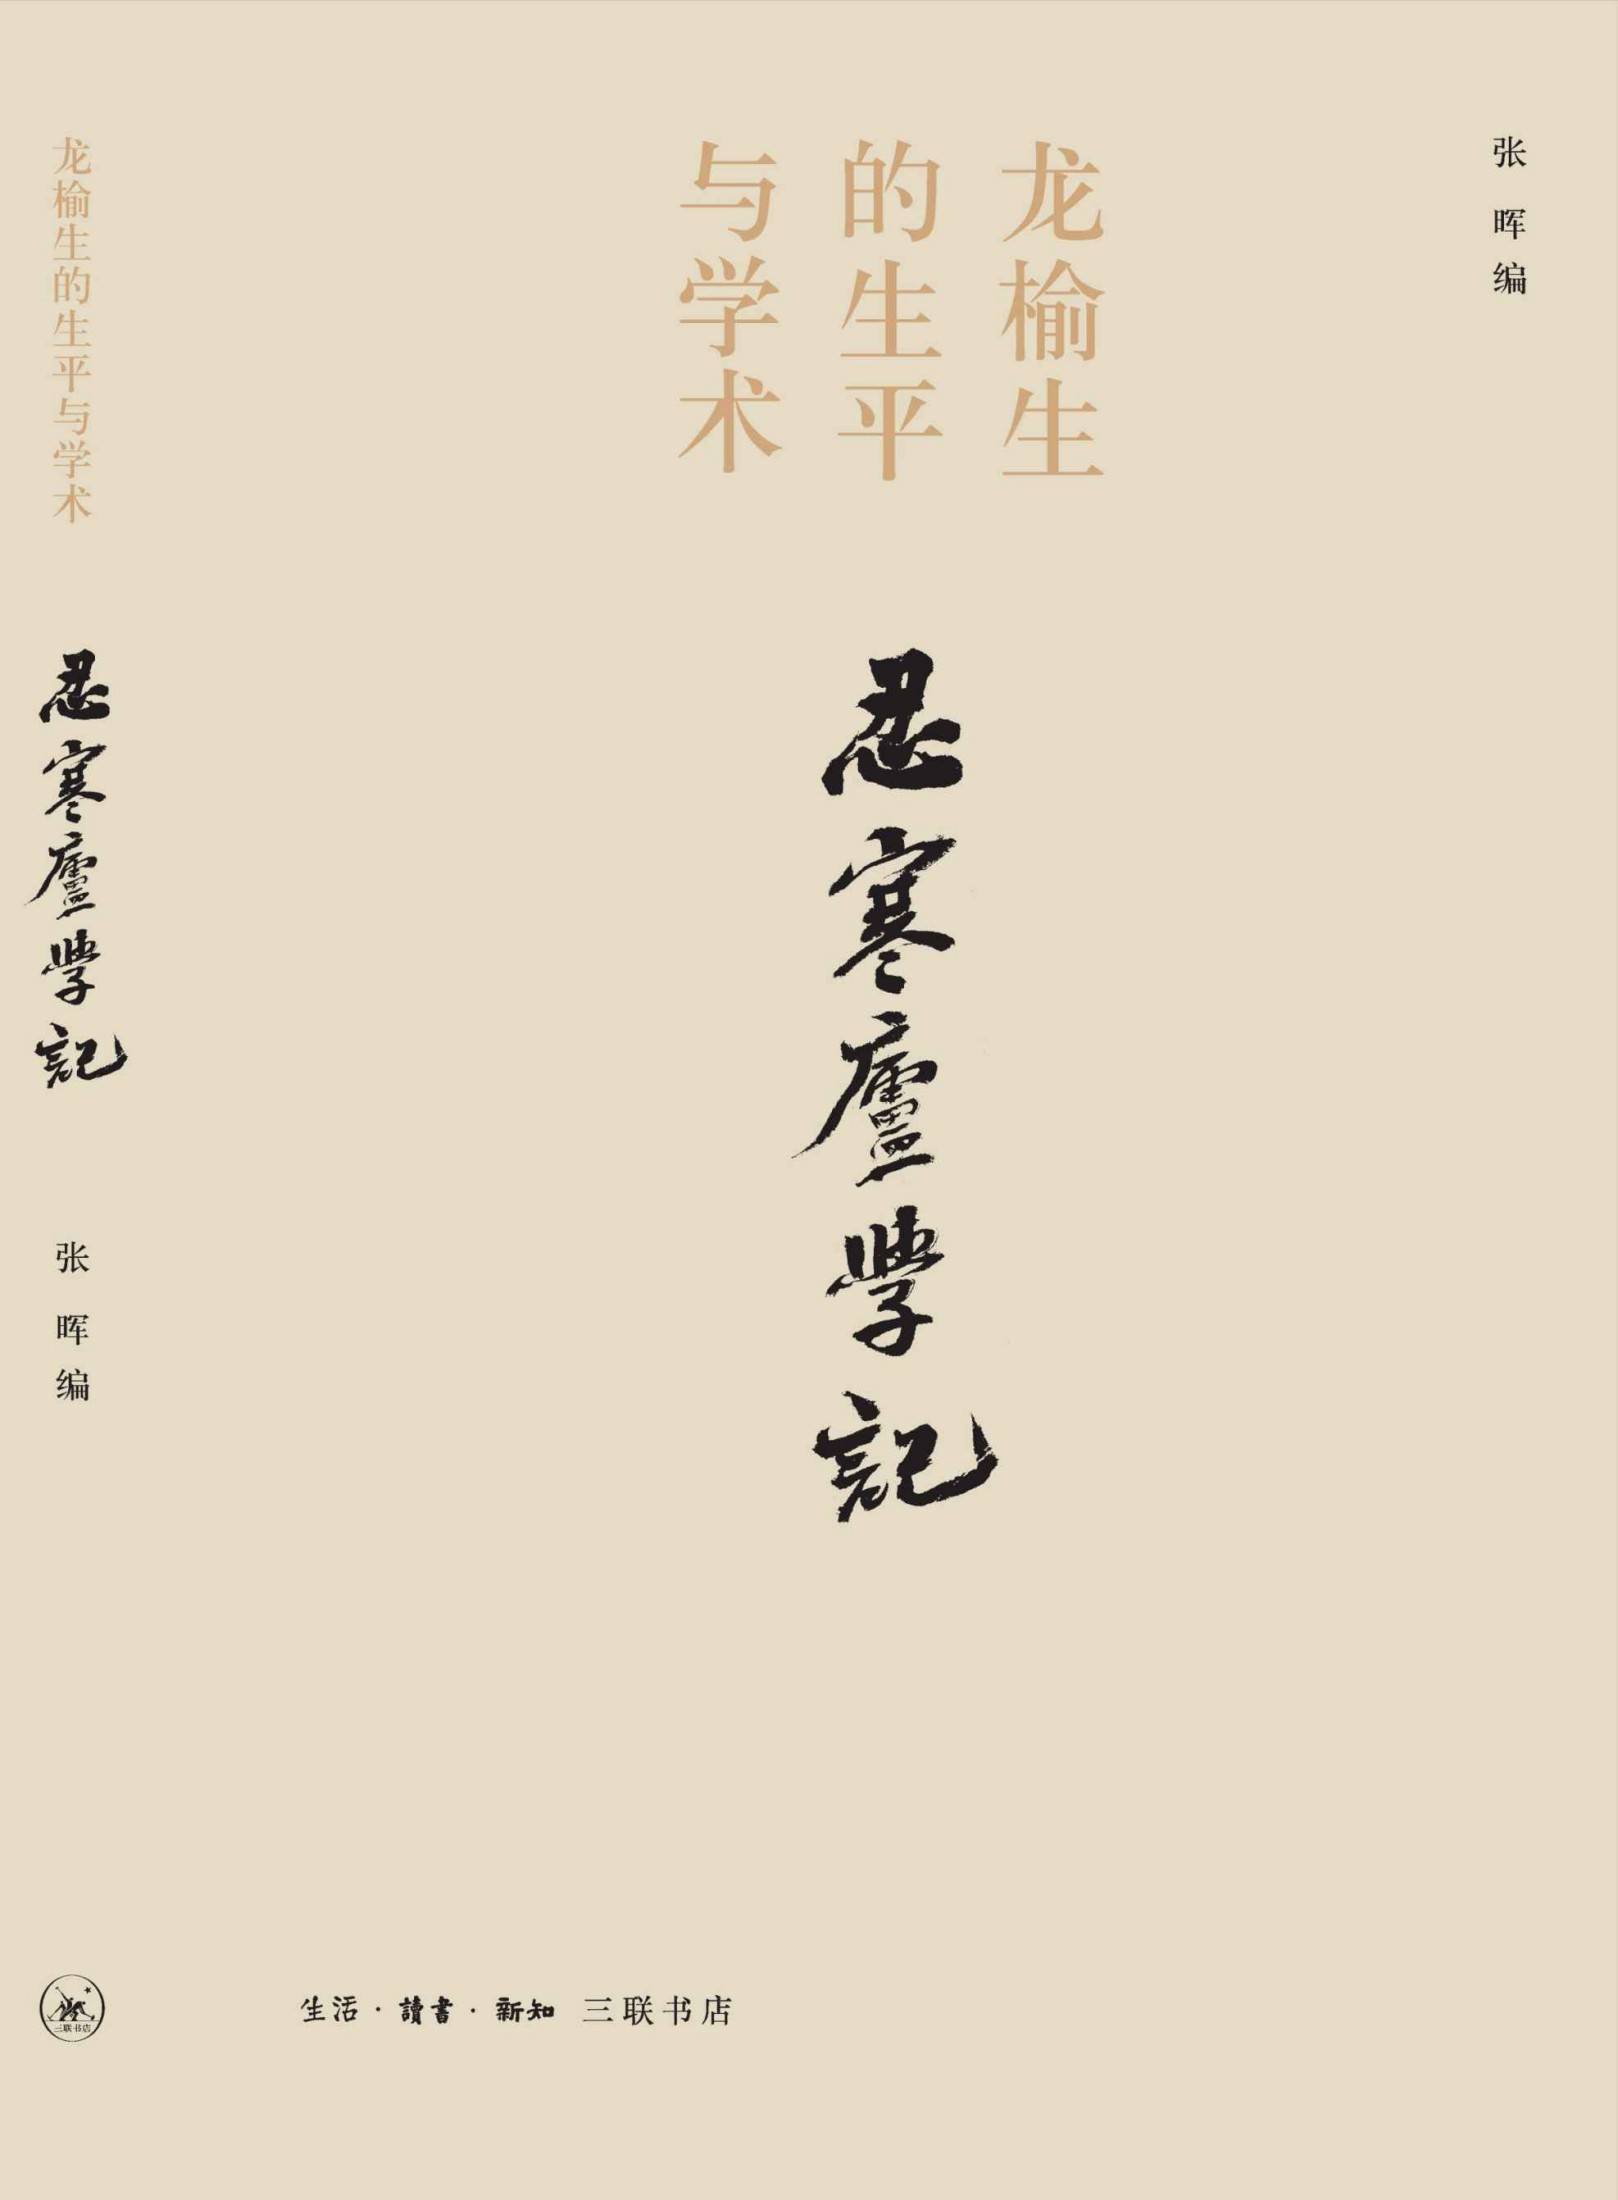 张晖编
龙榆生
的生平
与学术
忍寒廬學記
生活·讀書·新知 三联书店
龙榆生的生平与学术
忍寒廬學記
张晖编
三联书店